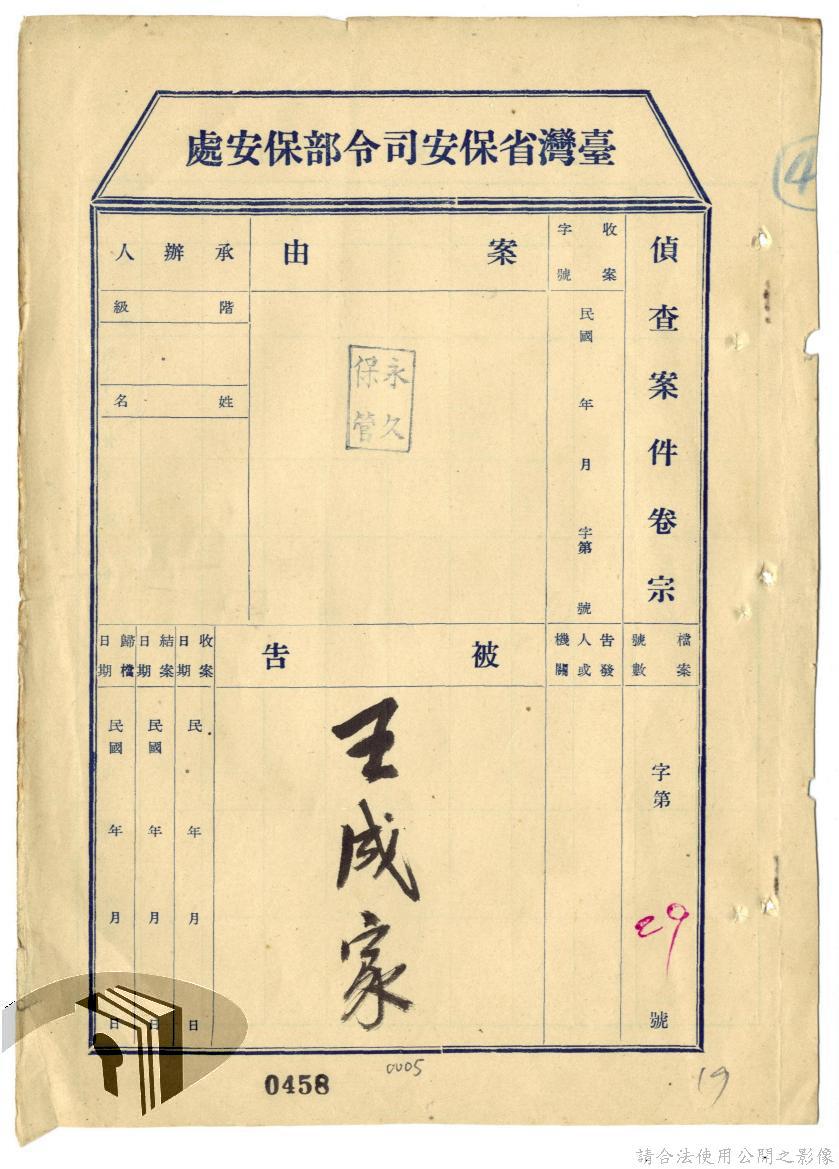 臺灣省保安司令部保安處
④
偵查案件卷宗
收案字號
民國 年 月 字第 號
案由
承辦人
階級
姓名
永久保管
檔案號數
字第 29 號
告發人或機關
被告
王成家
收案日期
民 年 月 日
結案日期
民國 年 月 日
歸檔日期
民國 年 月 日
0458
0005
19
請合法使用公開之影像